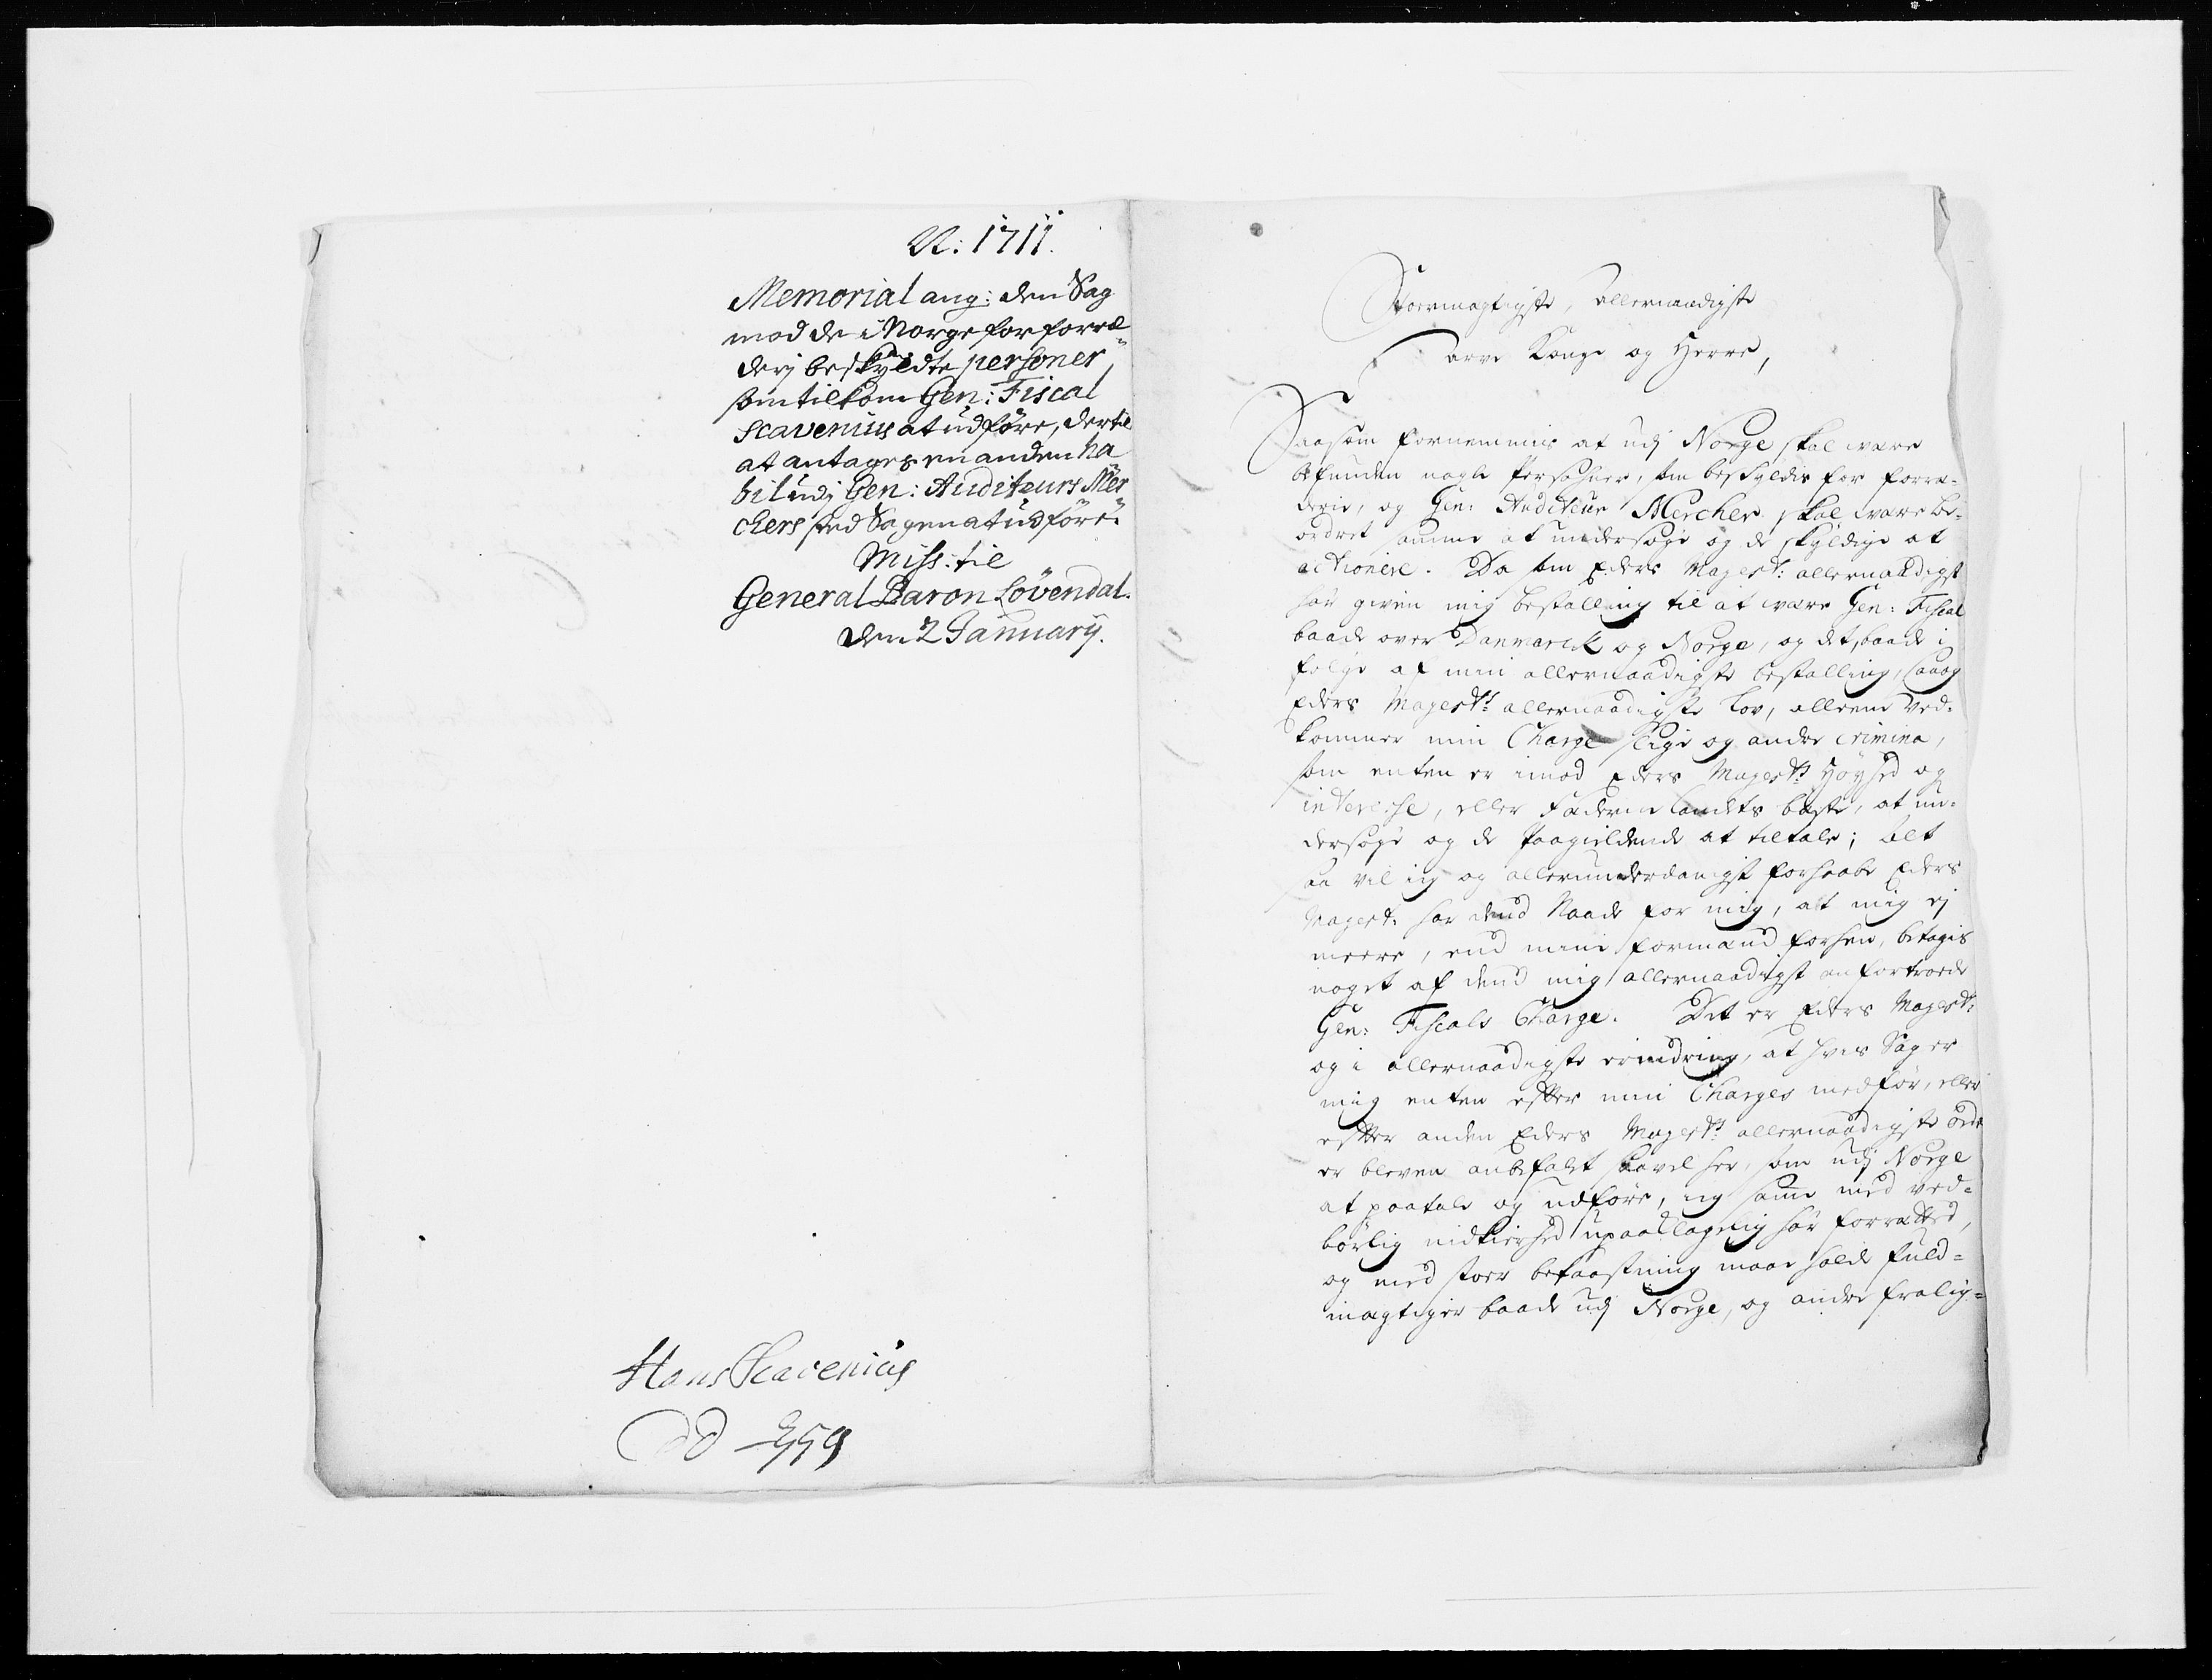 N: 1711.
Memorial ang: den Sag
mod de i Norge for forræ-
derj beskyldte personer,
som tilkom Gen: Fiscal
Scavenius at udføre, dertil
at antages en anden ha
bil udj Gen: Auditeurs Mer
chers sted Sagen at udføre.
Miss: til
General Baron Lövendal.
den 2 January.
Hans Scavenius
Stoermægtigste, allernaadigste
arve Konge og Herre,
Saasom fornemmis at udj Norge skal være
befunden nogle Persohner, som beskyldis for forræ-
derie, og Gen: Auditeur Mercher skal være be-
ordret samme at undersøge og de skyldige at
actionere. Da som Eders Mayest: allernaadigst
har given mig bestalling til at være Gen: Fiscal
baade over Danmarck og Norge, og det, baade i
følge af min allernaadigste bestalling, saa og
Eders Mayestt: allernaadigste Lov, alleene ved-
kommer min Charge slige og andre crimina,
som enten er imod Eders Mayestts Høyhed og
interesse, eller Fæderne Landets beste, at un-
dersøge og de paagieldende at tiltale; alt
saa vil ieg og allerunderdanigst forhaabe Eders
Mayest: har dend Naade for mig, at mig ej
meere, end min formand forhen, betagis
noget af dend mig allernaadigst anfortroede
Gen: Fiscals Charge. Det er Eders Mayestt:
og i allernaadigste erindring, at hvis Sager
mig enten efter min Charges medfør, eller
efter anden Eders Mayestts allernaadigste ordre
er bleven anbefalet saavel her, som udj Norge
at paatale og udføre, ieg samme med ved-
børlig nidkierhed upaaklagelig har forrætted,
og med stoer bekaastning maae holde fuld-
mægtiger baade udj Norge, og andre fralig-